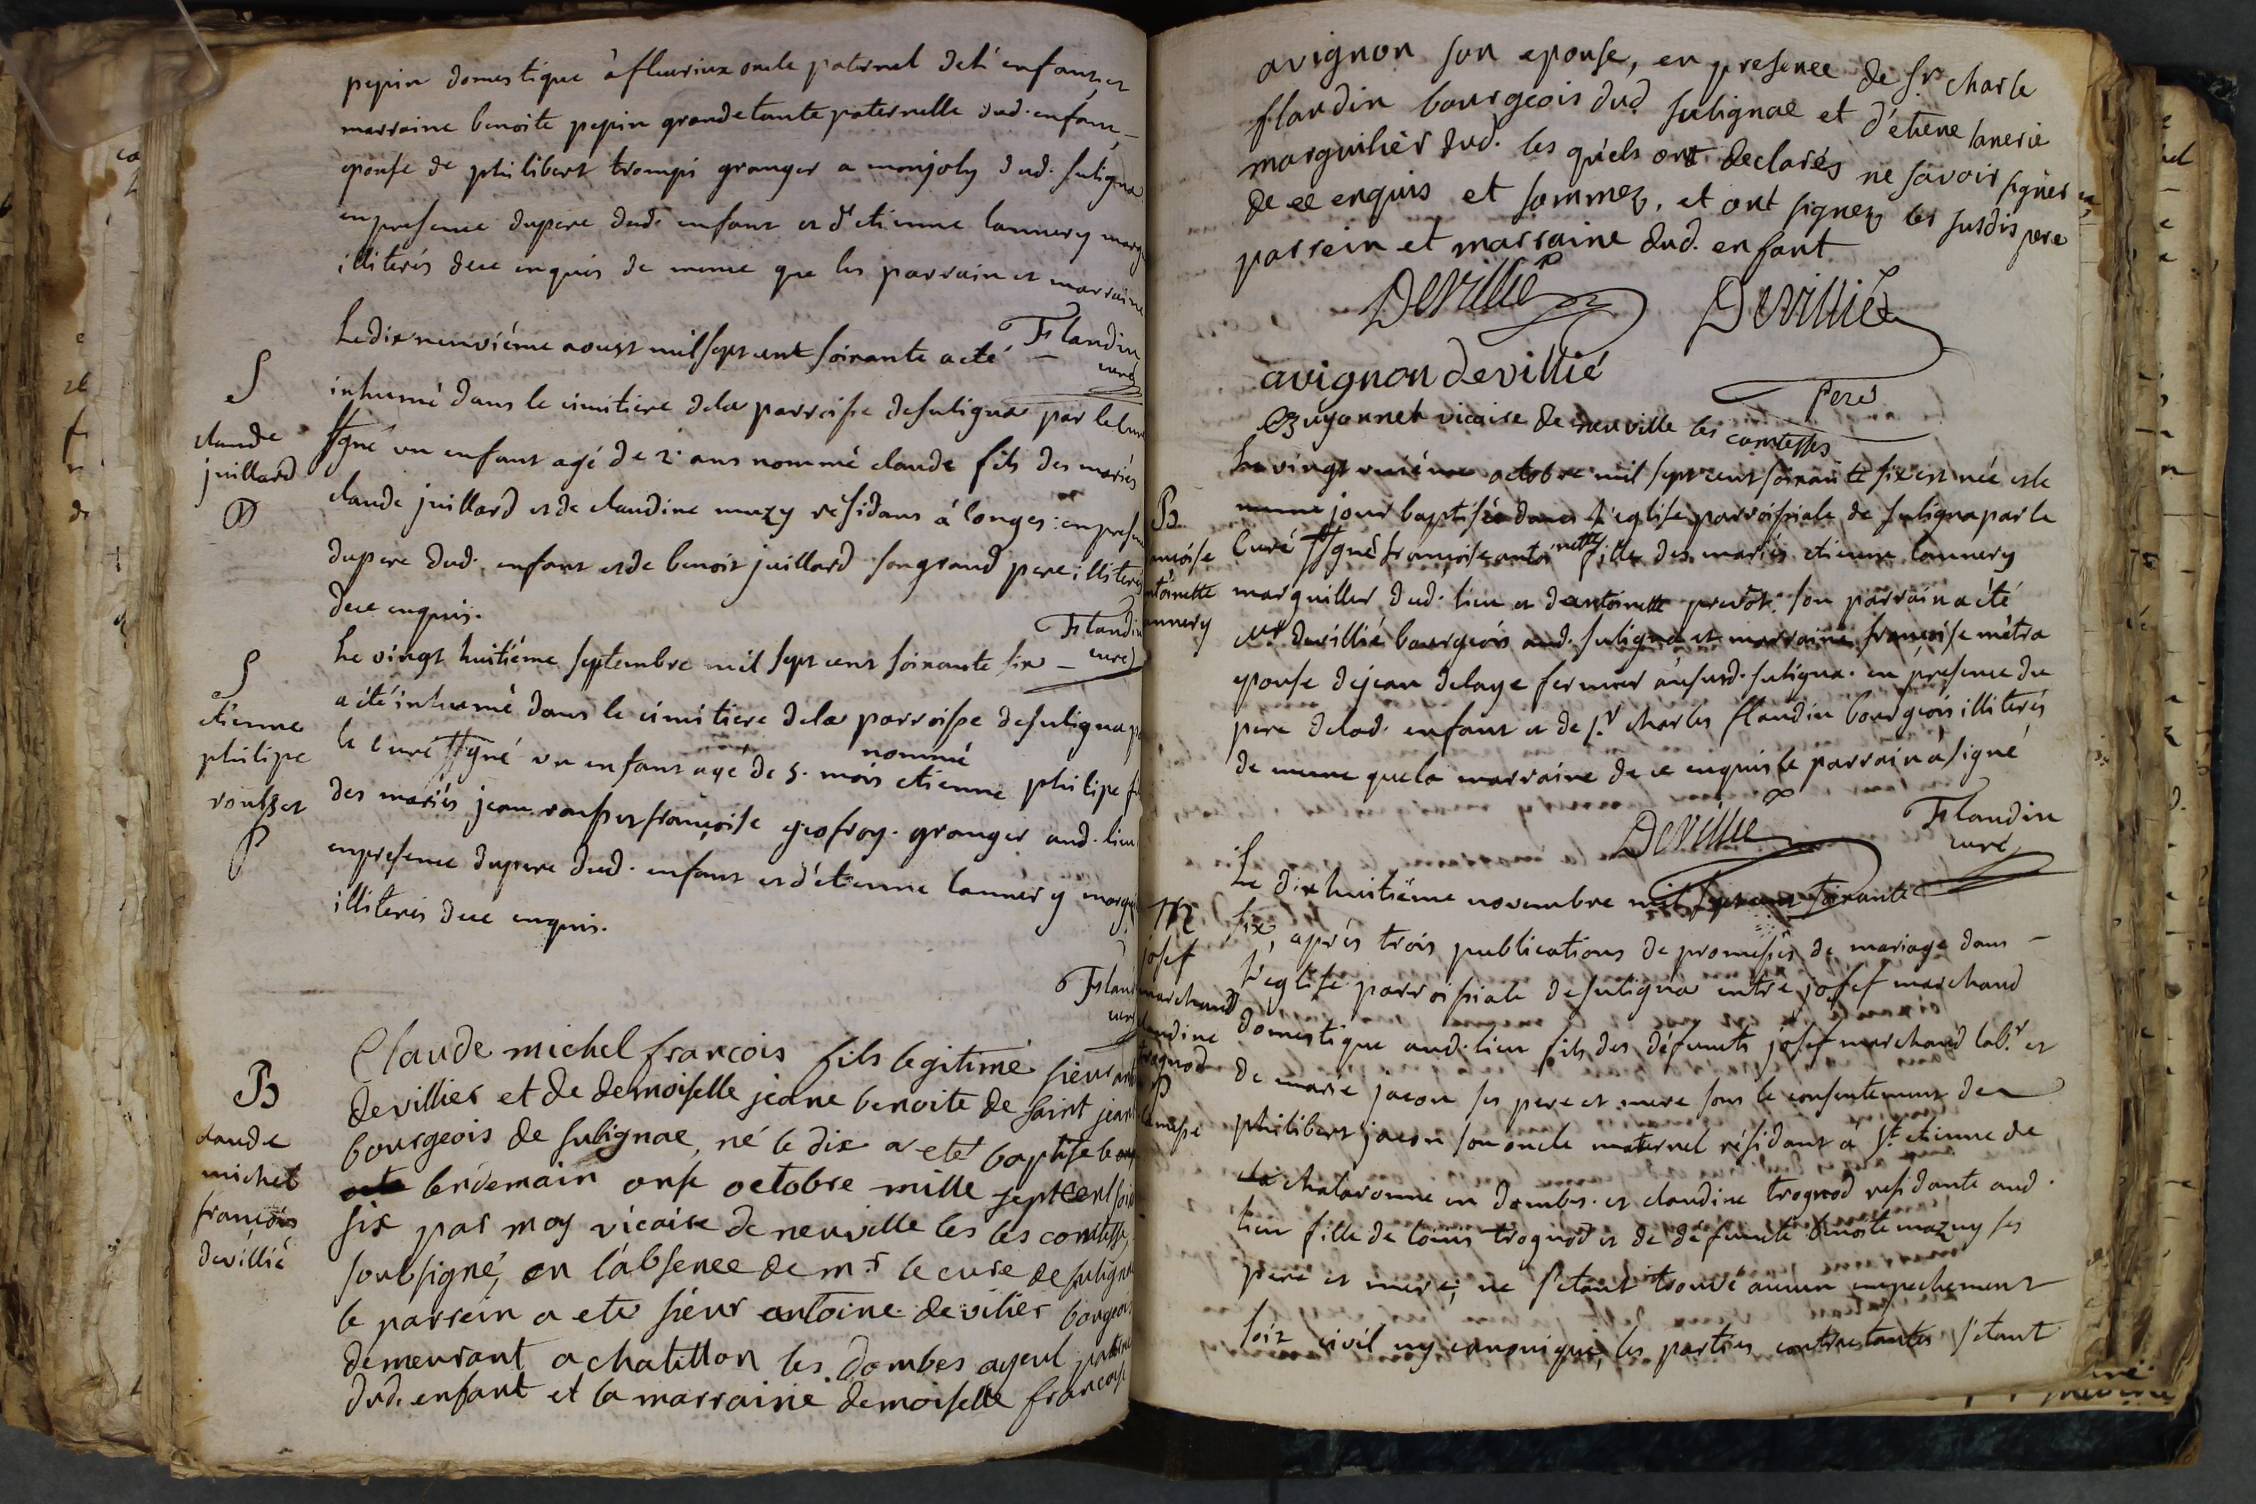 pepin domestique à fleurieux oncle paternel del'enfant, et
marraine benoite pepin grandetante paternelle dud. enfant –
epouse de philibert trompi granger a monjoly dud. suligna
enpresence dupere dud. enfant et d'etienne lannery marg
illiterés dece enquis de meme que les parrain et marraine
Flandin
curé
S
claude
juillard
Le dix neuviéme aoust mil sept cent soixante a eté
inhumé dans le cimitiere dela parroisse desuligna par le cur
ssgné un enfant agé de 2. ans nommé claude fils des mariés
claude juillard et de claudine muzy résidans á longes: en presen
dupere dud. enfant et de benoit juillard son grand pere illiterés
dece enquis.
Flandin
curé
S
etienne
philipe
rousset
Le vingt huitiéme septembre mil sept cent soixante six –
a été inhumé dans le cimitiere dela parroisse desuligna p
le curé ssgné un enfant agé de 5. mois nommé etienne philipe fi
des mariés jean rousset françoise geofroy. granger aud. lieu
enpresence dupere dud. enfant et d'étienne lannery marg
illiterés dece enquis.
Flan
curé
B
claude
michel
françois
devillié
Claude michel francois fils legitime sieur an
devillier et de demoiselle jeane benoite de saint jean
bourgeois de sulignac, né le dix a eté baptisé le
lendemain onse octobre mille sept cent soix
six par moy vicaire de neuville les les comtesse,
soubsigné, en l'absence de mr le curé de suligna
le parrein a eté sieur antoine de vilier bourgeois
demeurant a chatillon les Dombes ayeul paternel
dud. enfant et la marraine demoiselle francoise
avignon son epouse, en presence de sr charle
flandin bourgeois dud sulignac et d'etiene lanerie
marguilier dud. les quels ont declarés ne savoir signer
de ce enquis et sommez, et ont signez les susdis pere
parrein et marraine dud. enfant
Devillié Devillié
pere
avignon devillié
Guyonnet vicaire de neuville les comtesses
B
ancoise
ntoinette
annery
Le vingt octobre mil sept cent soixante six est née et le
meme jour baptisée dans l'eglise parroissiale de suligna par le
curé ssgné françoise antoinette fille des mariés etienne lannery
marguiller dud. lieu et d'antoinette prevôt. son parrain a été
Mr. devillié bourgeois aud. suligna et marraine françoise métra
epouse dejean delaye fermier aususd. suligna. en présence du
pere delad. enfant et de sr. charles flandin bourgeois illiterés
de meme que la marraine de ce enquis le parrain a signé
Devillié
Flandin
curé
M
josef
marchand
laudine
rognod
Le dix huitiéme novembre mil sept cent soixante
six, aprés trois publications de promesses de mariage dans –
l'eglise parroissiale desuligna entre josef marchand
domestique aud. lieu fils des défuncts josef marchand labr. et
de marie jacon ses pere et mere sous le consentement de
philibert jacon son oncle maternel résidant á st. etienne de
chalaronne en dombes. et claudine trognod residante aud.
lieu fille de louis trognod et de défuncte benoite mazuy ses
pere et mere; ne s'etant trouvé aucun empechement
soit civil ny canonique, les parties contractantes s'étant